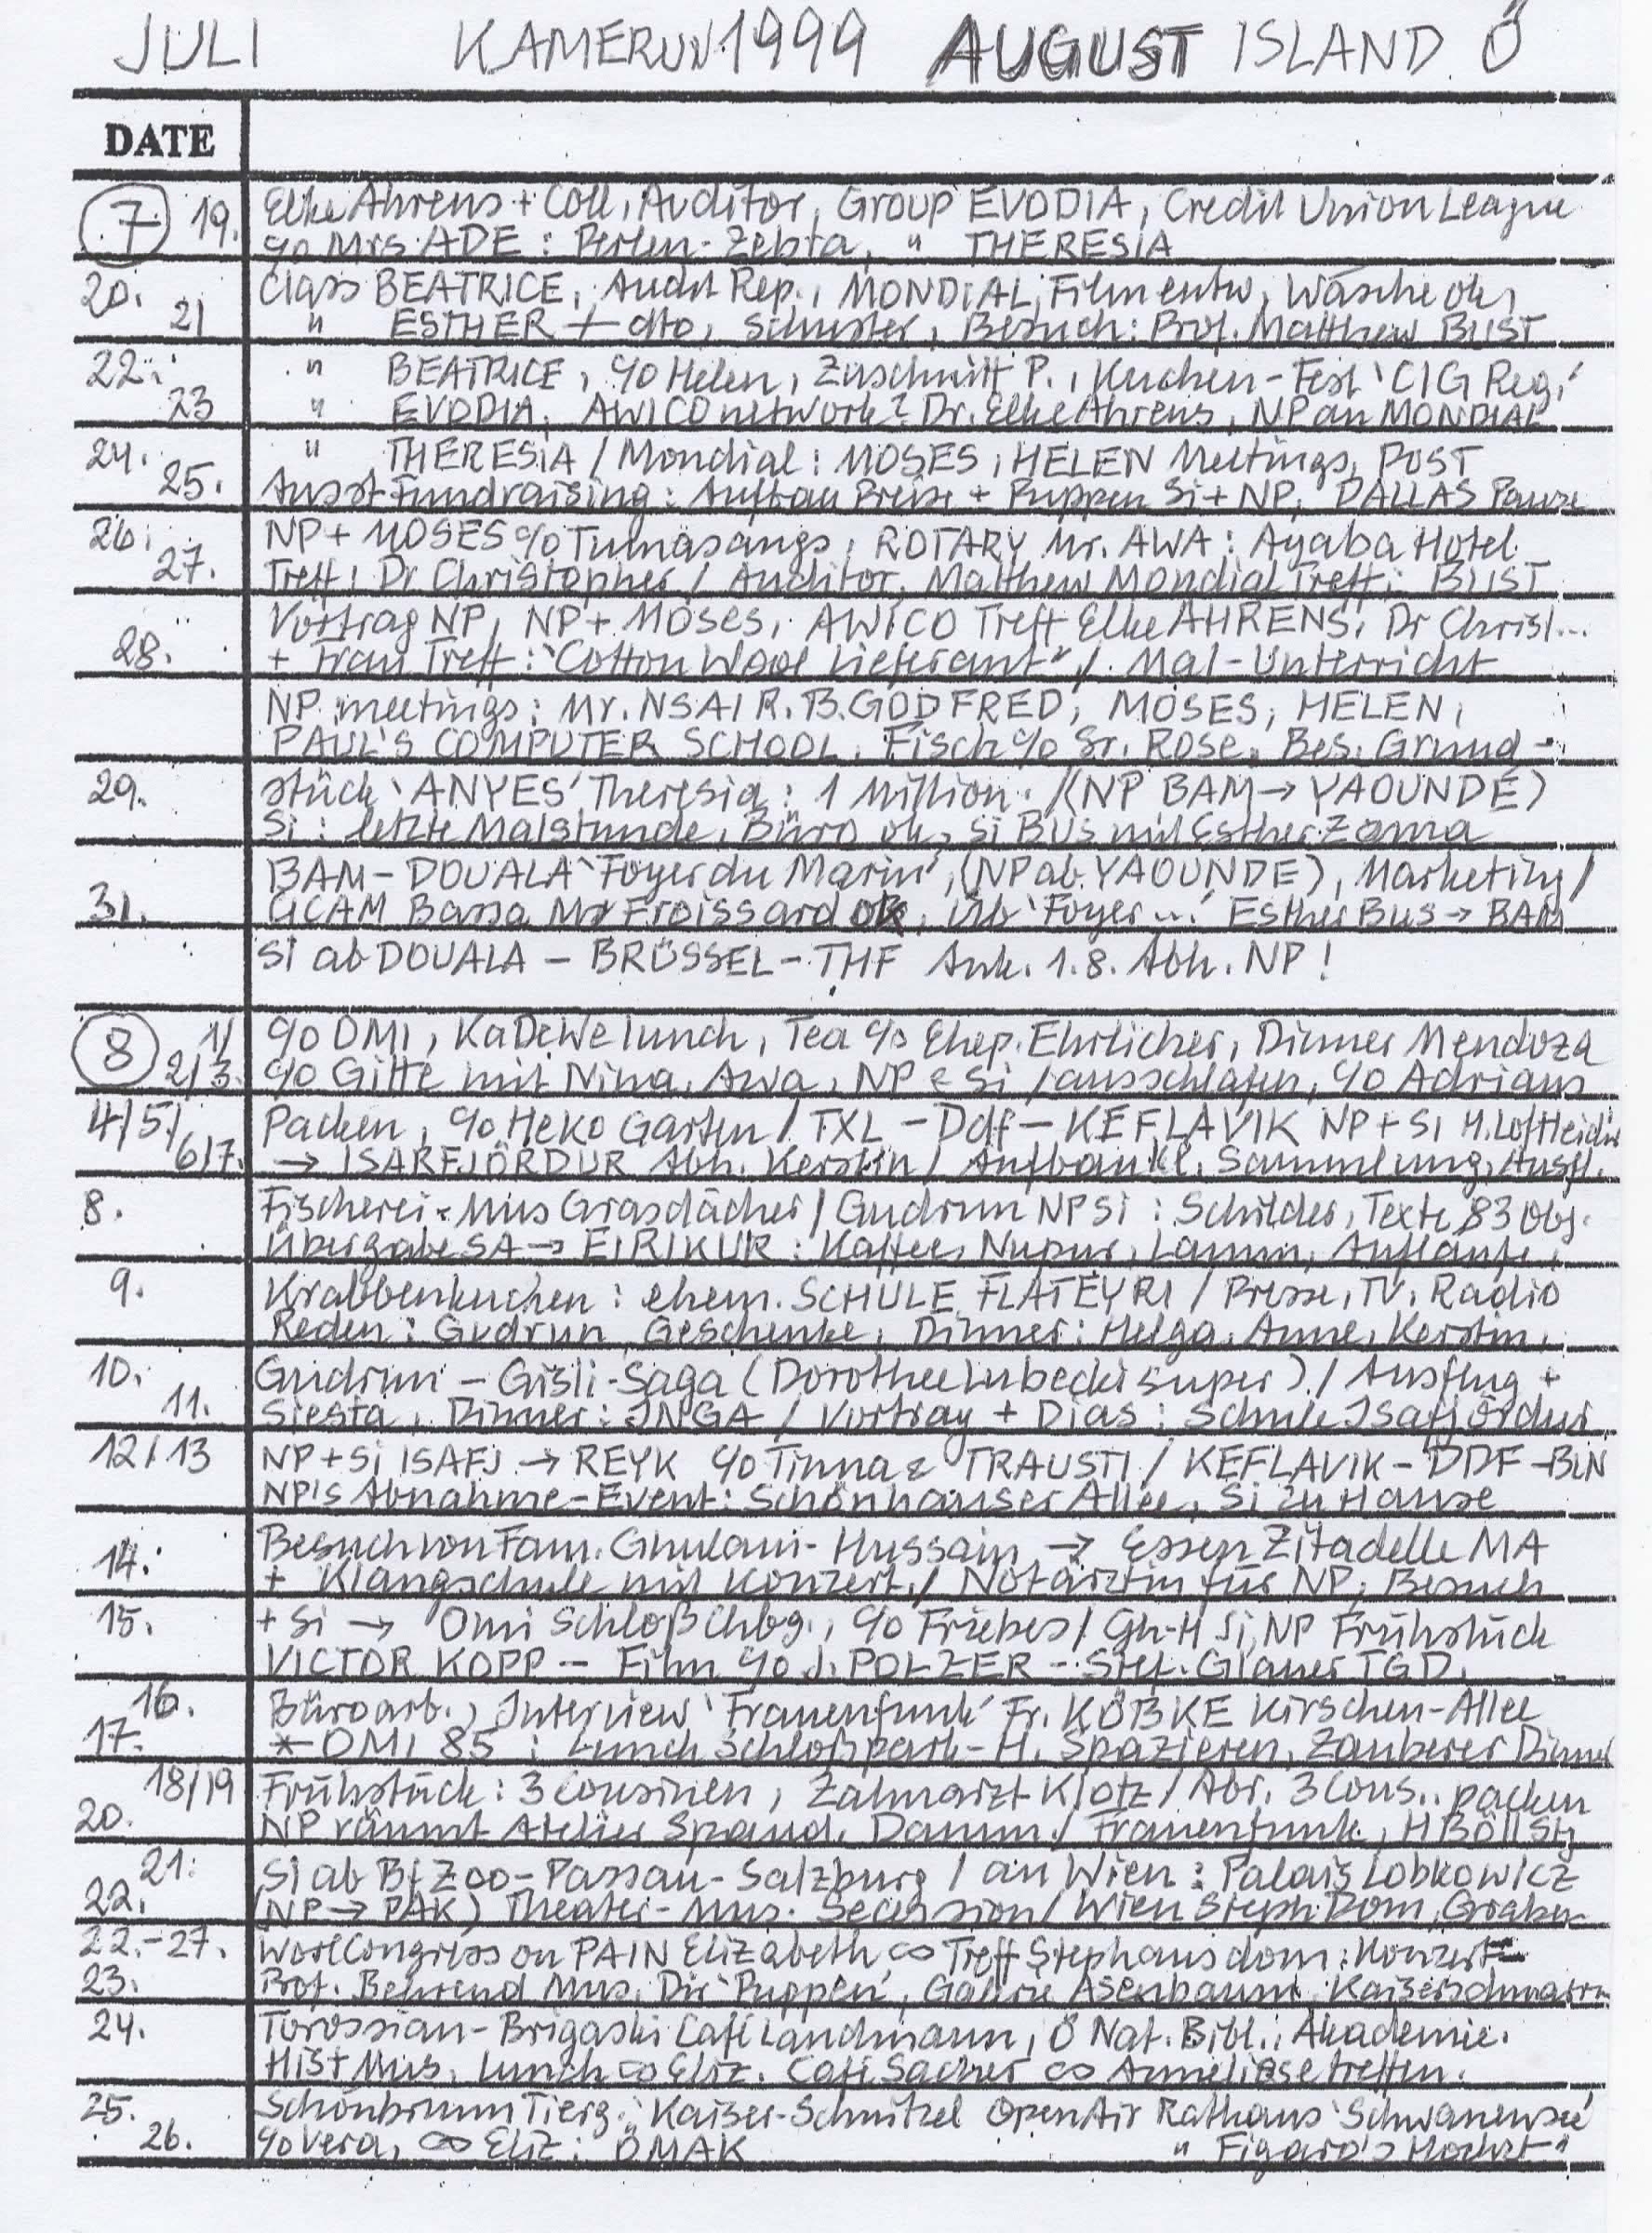 JULI KAMERUN 1999 AUGUST ISLAND Ö
DATE
7 19. Elke Ahrens + Coll, Auditor, Group EVODIA, Credit Union League
c/o Mrs ADE : Perlen-Zebra, " THERESIA
20. Class BEATRICE, Audit Rep., MONDIAL, Filmentw, Wäsche ok,
21 " ESTHER + dto, Schuster, Besuch: Prof. Matthew BUST
22. " BEATRICE, c/o Helen, Zuschnitt P., Kuchen-Fest 'CIG Reg,'
23 " EVODIA, AWICO network? Dr. Elke Ahrens, NP an MONDIAL
24. " THERESIA / Mondial : MOSES, HELEN Meetings, POST
25. Ausst Fundraising : Aufbau Preise + Puppen Si + NP, DALLAS Pause
26. NP + MOSES c/o Tumasangs, ROTARY Mr. AWA : Ayaba Hotel
27. Treff, Dr Christopher / Auditor, Matthew Mondial Treff, BUST
Vortrag NP, NP + Moses, AWICO Treff Elke AHRENS, Dr Christ...
28. + Frau Treff : 'Cotton Wool Lieferant' / Mal-Unterricht
NP meetings : Mr. NSAI R. B. GODFRED, MOSES, HELEN,
PAUL'S COMPUTER SCHOOL, Fisch c/o Sr. Rose, Bes. Grund-
29. stück 'ANYES' Theresia : 1 Million. / (NP BAM → YAOUNDÉ)
Si : letzte Malstunde, Büro ok, Si BUS mit Esther Zama
BAM – DOUALA 'Foyer du Marin', (NP ab YAOUNDE), Marketing /
31. GICAM Bassa Mr Froissard ok, Üb 'Foyer...' Esther Bus → BAM
Si ab DOUALA – BRÜSSEL – THF Ank. 1.8. Abh. NP !
8 1/ c/o OMI, KaDeWe lunch, Tea c/o Ehep. Ehrlicher, Dinner Mendoza
2/3. c/o Gitte mit Nina, Awa, NP & Si / ausschlafen, c/o Adrians
4/5/ Packen, c/o Heko Garten / TXL – Ddf – KEFLAVIK NP + SI H. Loftleidir
6/7. → ISAFJÖRDUR Abh. Kerstin / Aufbau Sammlung, Ausst.
8. Fischerei-Mus Grasdächer / Gudrun NP Si : Schilder, Texte 83 Obj.
Übergabe SA → EIRIKUR : Kaffee, Nupur, Lamm, Aufläufe,
9. Krabbenkuchen : ehem. SCHULE FLATEYRI / Presse, TV, Radio
Reden : Gudrun, Geschenke, Dinner : Helga, Anne, Kerstin,
10. Gudrun – Gisli-Saga (Dorothee Lubecki super) / Ausflug +
11. Siesta, Dinner : INGA / Vortrag + Dias : Schule Isafjördur
12/13 NP + Si ISAFJ → REYK c/o Tinna & TRAUSTI / KEFLAVIK – DDF – BLN
NP'S Abnahme-Event : Schönhauser Allee, Si zu Hause
14. Besuch von Fam. Ghulam-Hussain → Essen Zitadelle MA
+ Klangschule mit Konzert / Notärztin für NP, Besuch
15. + Si → Omi Schloß Chbg., c/o Friebes / Gh-H Si, NP Frühstück
VICTOR KOPP – Film c/o J. POLZER – Stef. Glauer TGD.
16. Büroarb., Interview 'Frauenfunk' Fr. KÖBKE Kirschen-Allee
17. * OMI 85 : Lunch Schloßpark-H. Spazieren, Zauberer Dinner
18/19 Frühstück : 3 Cousinen, Zahnarzt Klotz / Abr. 3 Cous., packen
20. NP räumt Atelier Spand. Damm / Frauenfunk, H Böll Stg
21. Si ab Bf Zoo – Passau – Salzburg / an Wien : Palais Lobkowicz
22. (NP → PAK) Theater-Mus. Secession / Wien Steph Dom, Graben
22.-27. WorlCongress on PAIN Elizabeth ∞ Treff Stephansdom : Konzert
23. Prof. Behrend Mus. Dir 'Puppen', Galerie Asenbaum, Kaiserschmarrn
24. Torossian-Brigaski Café Landmann, Ö Nat. Bibl., Akademie.
Hist Mus. Lunch ∞ Eliz. Café Sacher ∞ Anneliese treffen.
25. Schönbrunn Tierg., Kaiser-Schnitzel OpenAir Rathaus 'Schwanensee'
26. c/o Vera, ∞ Eliz : ÖMAK " Figaro's Hochzt."